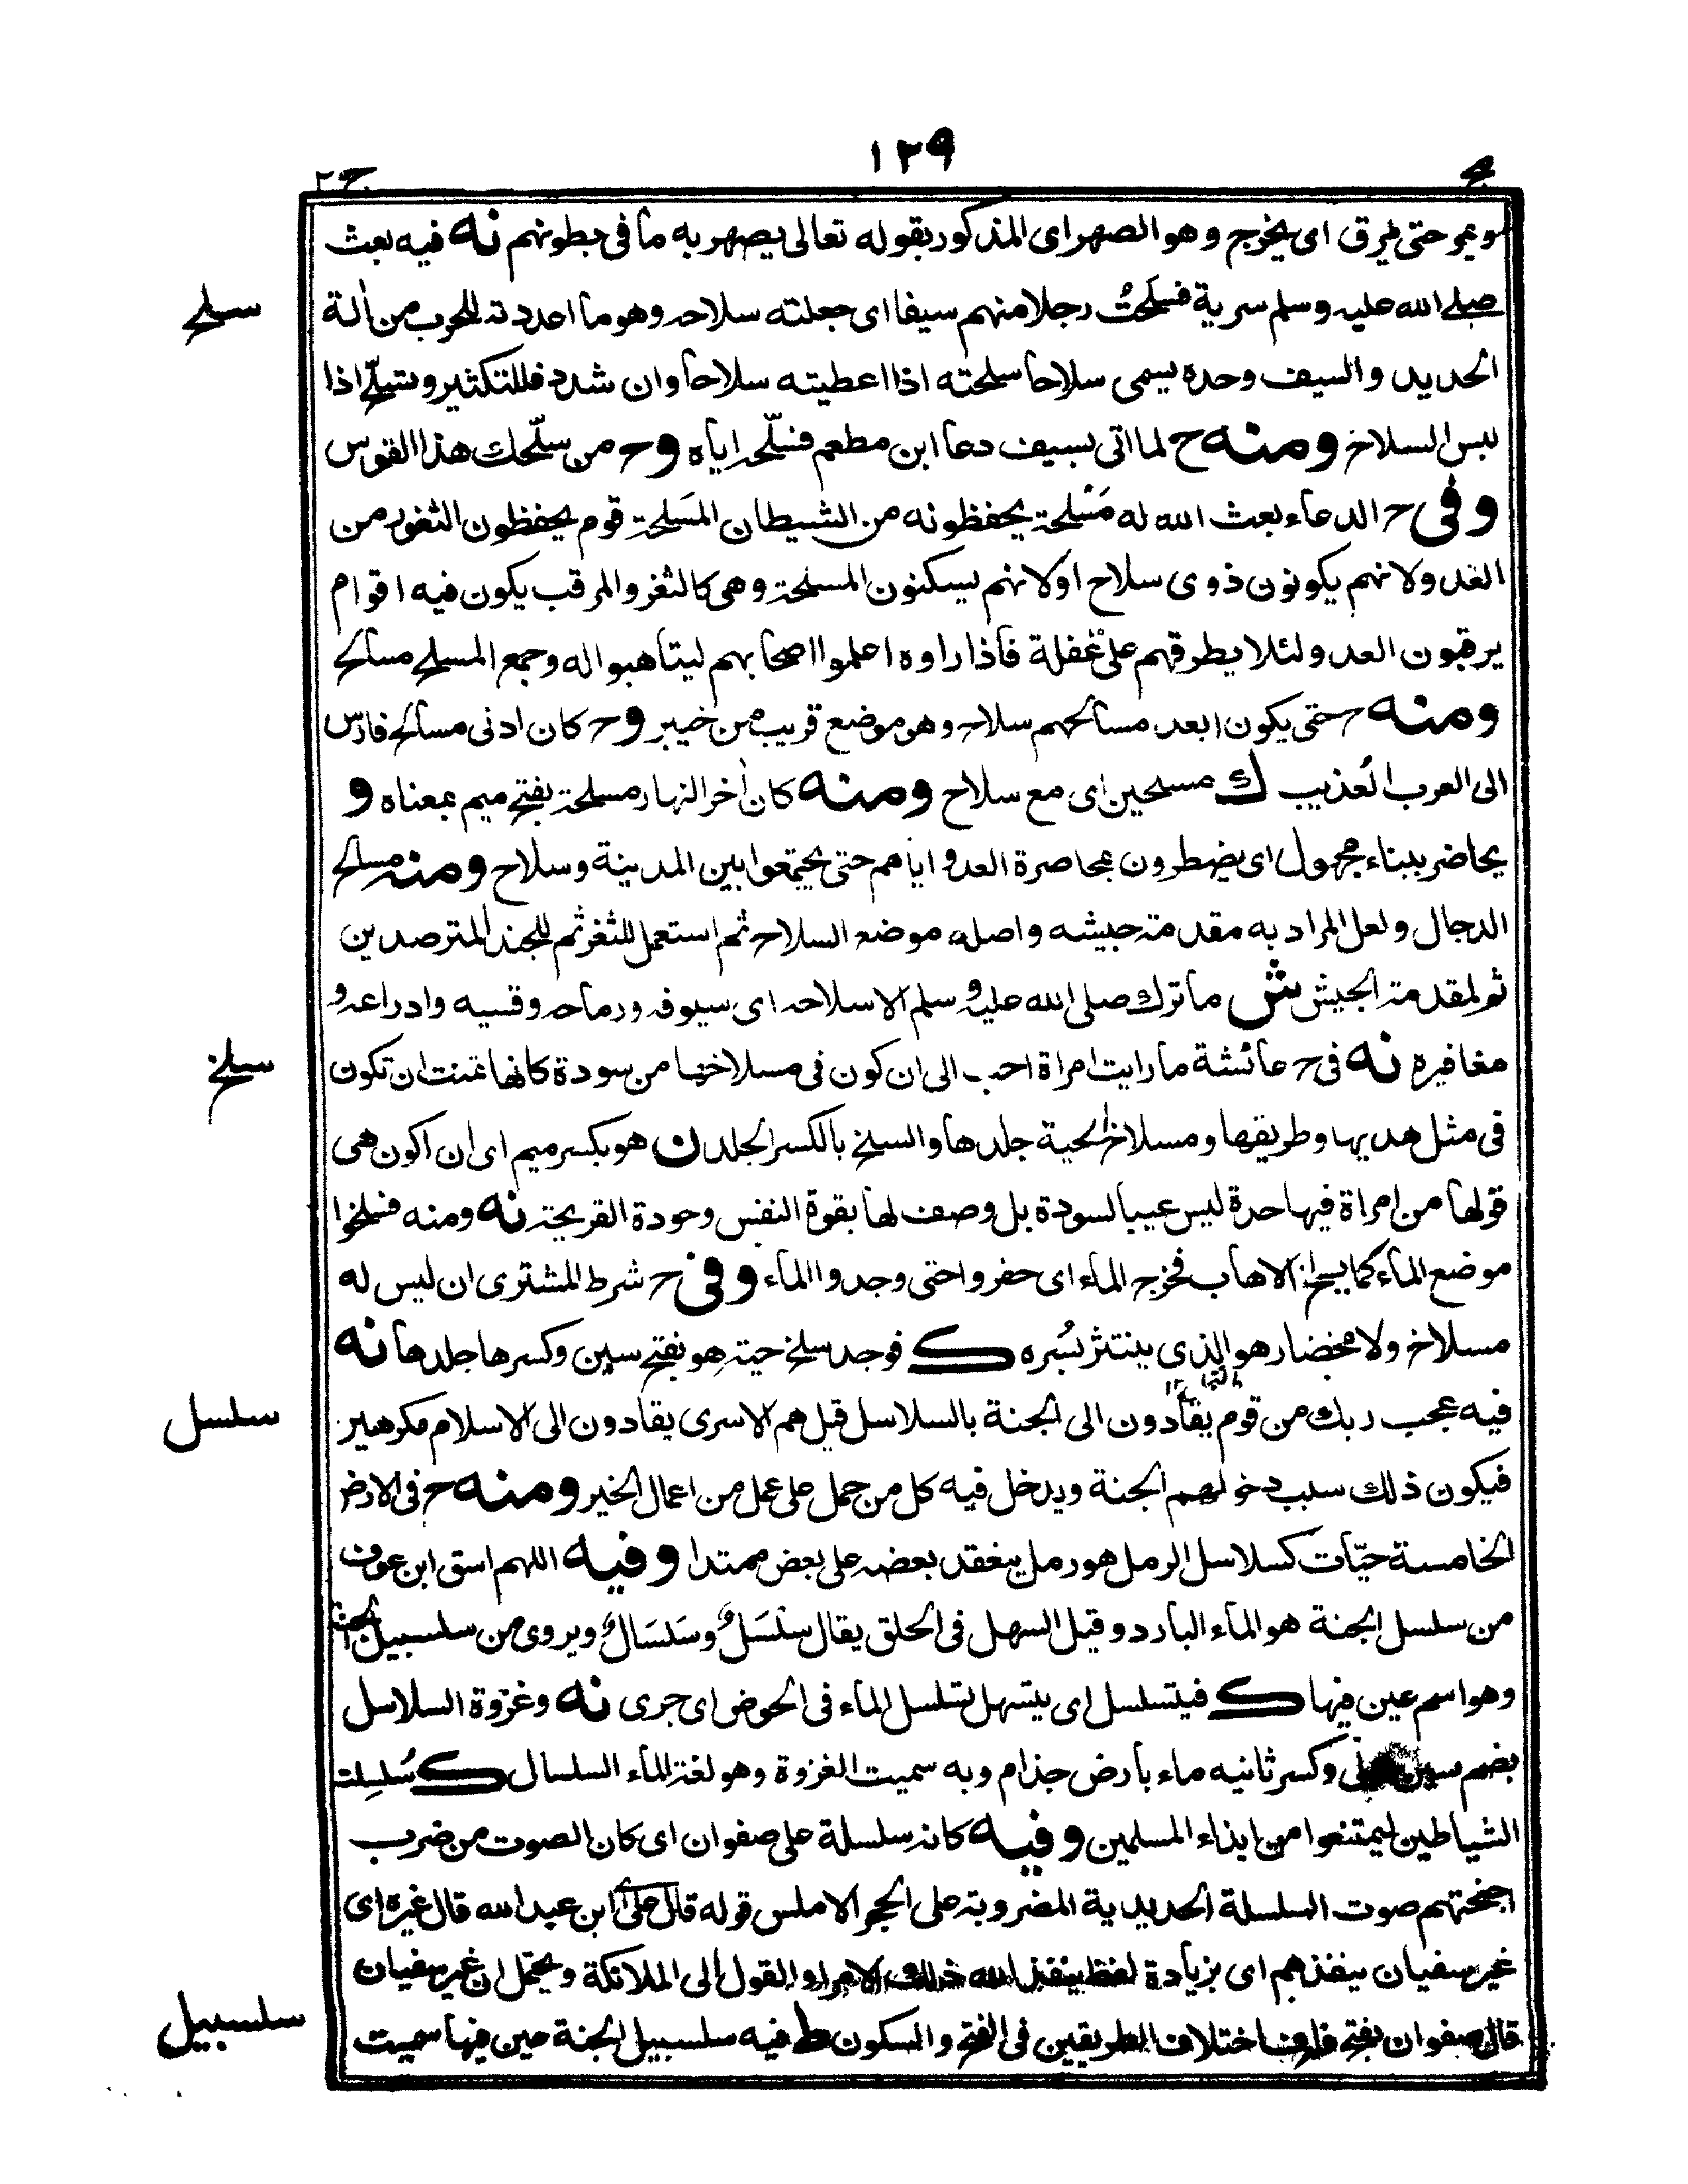 ١٢٩
ج ٢
وغيره حتى يمرق اى يخرج وهو الصهر اى المذكور بقوله تعالى يصهر به ما فى بطونهم نه فيه بعث
صلى الله عليه وسلم سرية فسلحت رجلا منهم سيفا اى جعلته سلاحه وهو ما اعددته للحرب من اٰلة
سلح
الحديد والسيف وحده يسمى سلاحا سلحته اذا اعطيته سلاحا وان شدد فللتكثير وتسلّح اذا
لبس السلاح ومنه ح لما اتى بسيف دعا ابن مطعم فسلّحه اياه وح من سلّحك هذا القوس
وفى ح الدعاء بعث الله له مَسْلحة يحفظونه من الشيطان المَسلحة قوم يحفظون الثغور من
العدو لانهم يكونون ذوى سلاح او لانهم يسكنون المسلحة وهى كالثغر والمرقب يكون فيه اقوام
يرقبون العدو لئلا يطرقهم على غفلة فاذا راوه اعلموا اصحابهم ليتاهبوا له وجمع المسلح مسالح
ومنه ح حتى يكون ابعد مسالحهم سلاح وهو موضع قريب من خيبر وح كان ادنى مسالح فارس
الى العرب العُذيب ك مسلحين اى مع سلاح ومنه كان اٰخر النهار مسلحة بفتح ميم بمعناه و
يحاضر ببناء مجهول اى يضطرون بمحاصرة العدو اياهم حتى يجتمعوا بين المدينة وسلاح ومنه مسالح
الدجال ولعل المراد به مقدمة جيشه واصله موضع السلاح ثم استعمل للثغر ثم للجند المترصدين
ثم لمقدمة الجيش ش ما ترك صلى الله عليه وسلم الا سلاحه اى سيوفه ورماحه وقسيه وادراعه و
مغافيره نه فى ح عائشة ما رايت امراة احب الى ان كون فى مسلاخها من سودة كانها تمنت ان تكون
سلخ
فى مثل هديها وطريقها ومسلاخ الحية جلدها والسلخ بالكسر الجلد ن هو بكسر ميم اى ان اكون هى
قولها من امراة فيها حدة ليس عيبا لسودة بل وصف لها بقوة النفس وجودة القريحة نه ومنه فسلخوا
موضع الماء كما يسلخ الاهاب فخرج الماء اى حفروا حتى وجدوا الماء وفى ح شرط المشترى ان ليس له
مسلاخ ولا مخضار هو الذى ينتثر بُسُره ك فوجد سلخ حية هو بفتح سين وكسرها جلدها نه
فيه عجب ربك من قوم يقادون الى الجنة بالسلاسل قيل هم الاسرى يقادون الى الاسلام مكرهين
سلسل
فيكون ذلك سبب دخولهم الجنة ويدخل فيه كل من حمل على عمل من اعمال الخير ومنه ح فى الارض
الخامسة حيّات كسلاسل الرمل هو رمل ينعقد بعضه على بعض ممتدا وفيه اللهم اسق ابن عوف
من سلسل الجنة هو الماء البارد وقيل السهل فى الحلق يقال سَلْسَلٌ وسَلسَالٌ ويروى من سلسبيل الجنة
وهو اسم عين فيها ك فيتسلسل اى يتسهل لتسلسل الماء فى الحوض اى جرى نه وغزوة السلاسل
بضم سين وكسر ثانيه ماء بارض جذام وبه سميت الغزوة وهو لغة الماء السلسال ك سُلسِلت
الشياطين ليمتنعوا من ايذاء المسلمين وفيه كانه سلسلة على صفوان اى كان الصوت من ضرب
اجنحتهم صوت السلسلة الحديدية المضروبة على الحجر الاملس قوله قال على اى ابن عبد الله قال غيره اى
غير سفيان ينفذهم اى بزيادة لفظ ينفذ الله ذلك الامر او القول الى الملائكة ويحتمل ان غير سفيان
قال صفوان بفتح فا اختلاف الطريقين فى الفتح والسكون ط فيه سلسبيل الجنة عين فيها سميت
سلسبيل